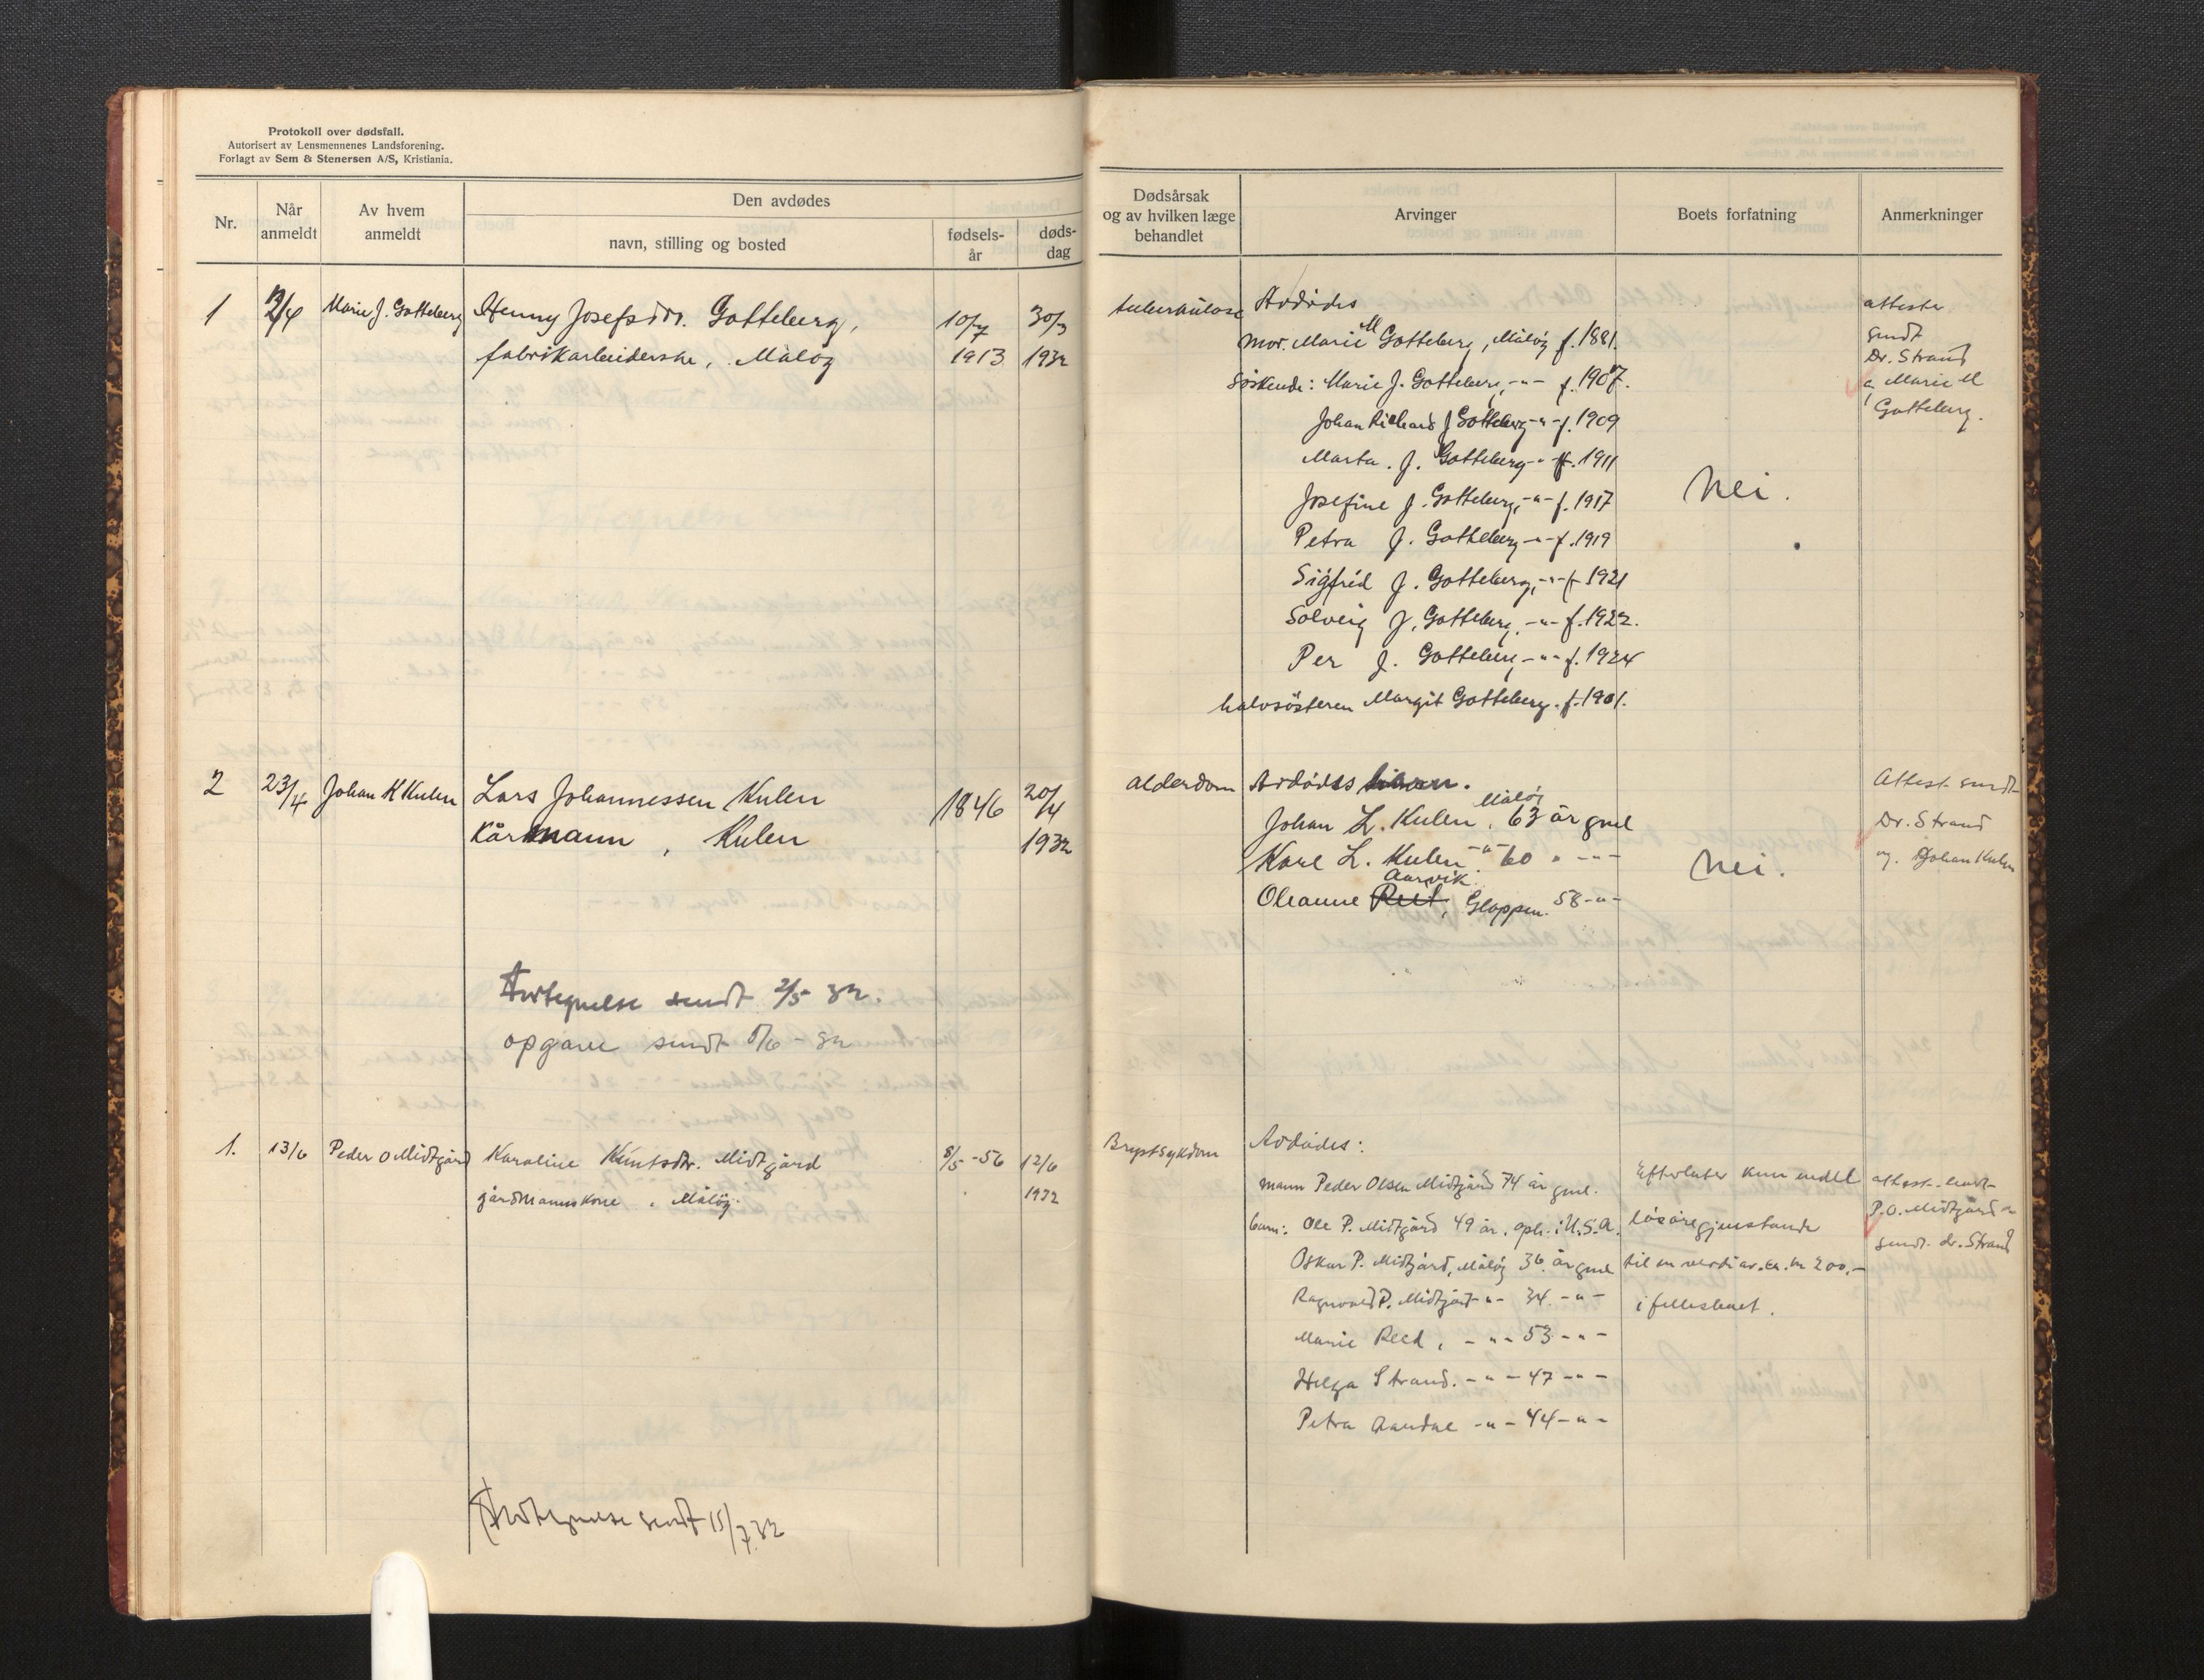 Protokoll over dødsfall.
Autorisert av Lensmennenes Landsforening.
Forlagt av Sem & Stenersen A/S, Kristiania.
Nr.
Når anmeldt
Av hvem anmeldt
Den avdødes
navn, stilling og bosted
fødsels-år
døds-dag
Dødsårsak
og av hvilken læge
behandlet
Arvinger
Boets forfatning
Anmerkninger
1 Marie J. Gotteberg Henny Josefsdtr. Gotteberg, 10/7 30/3
fabrikarbeiderske, Måløy 1913 1932
tuberkulose Avdødes
mor. Marie M Gotteberg, Måløy f. 1881.
Søskende: Marie J. Gotteberg, -"- f. 1907.
Johan Richard J Gotteberg -"- f. 1909
Marta. J. Gotteberg -"- f. 1911
Josefine J. Gotteberg, -"- f. 1917
Petra J. Gotteberg -"- f. 1919
Sigfrid J. Gotteberg, -"- f. 1921
Solveig J. Gotteberg, -"- f. 1922.
Per J. Gotteberg, -"- f. 1924
halvsösteren Margit Gotteberg. f. 1901.
Nei.
attester
sendt
Dr. Strand
Marie M
Gotteberg.
2 23/4 Johan K Kulen Lars Johannessen Kulen 1846 20/4
Kårmann, Kulen 1932
alderdom Avdødes
Johan L. Kulen, Måløy 63 år gml
Karl L. Kulen -"- 60 " -"-
Oleanne Aarvik, Gloppen. 58 -"-
Nei.
Attest sendt
Dr. Strand
og Johan Kulen
Fortegnelse sendt 2/5 32.
opgave sendt
1. 13/6 Peder O Midtgård Karoline Knutsdtr. Midtgård 8/5 -56 12/6
gårdmannskone, Måløy. 1932
Brystsykdom Avdødes:
mann Peder Olsen Midtgård 74 år gml.
barn: Ole P. Midtgård 49 år, oph. i U.S.A.
Oskar P. Midtgård, Måløy 36 år gml
Ragnvald P. Midtgård -"- 34 -"-
Marie Reed, -"- 53 -"-
Helga Strand. -"- 47 -"-
Petra Aandal -"- 44 -"-
Efterlater kun endel
løsøregjenstande
til en verdi av ca. kr 200,-
i fellesboet.
attest sendt
P.O. Midtgård
sendt dr. Strand
Fortegnelse sendt 15/7 32